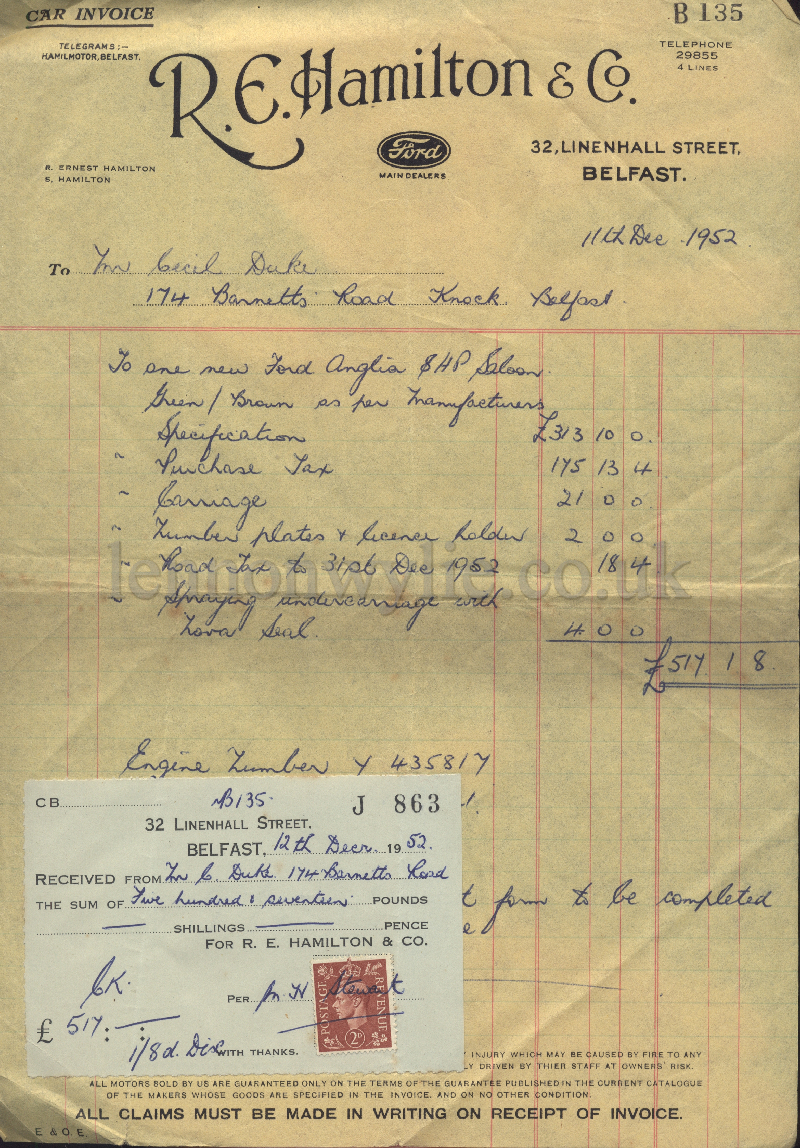 CAR INVOICE
B 135
TELEGRAMS:-
HAMILMOTOR, BELFAST.
TELEPHONE
29855
4 LINES
R. E. Hamilton & Co.
Ford
MAIN DEALERS
32, LINENHALL STREET,
BELFAST.
R. ERNEST HAMILTON
S. HAMILTON
11th Dec 1952
To Mr Cecil Duke
174 Barnetts Road Knock. Belfast.
To one new Ford Anglia 8HP Saloon.
Green / Brown as per Manufacturers
Specification £313 10 0.
" Purchase Tax 175 13 4
" Carriage 21 0 0.
" Number plates & licence holder 2 0 0
" Road Tax to 31st Dec 1952 18 4
" Spraying undercarriage with
Nova Seal. 4 0 0
£517 1 8.
lennonwylie.co.uk
Engine Number Y 435817
CB B135. J 863
32 LINENHALL STREET.
BELFAST, 12th Decr. 1952.
RECEIVED FROM Mr C Duke 174 Barnetts Road
THE SUM OF Five hundred & seventeen POUNDS
— SHILLINGS — PENCE
FOR R. E. HAMILTON & CO.
form to be completed
CK.
PER M H Stewart
POSTAGE REVENUE
2D
£ 517 : — : —
1/8d. Dis WITH THANKS.
INJURY WHICH MAY BE CAUSED BY FIRE TO ANY
LY DRIVEN BY THIER STAFF AT OWNERS' RISK.
ALL MOTORS SOLD BY US ARE GUARANTEED ONLY ON THE TERMS OF THE GUARANTEE PUBLISHED IN THE CURRENT CATALOGUE
OF THE MAKERS WHOSE GOODS ARE SPECIFIED IN THE INVOICE, AND ON NO OTHER CONDITION.
ALL CLAIMS MUST BE MADE IN WRITING ON RECEIPT OF INVOICE.
E & O. E.